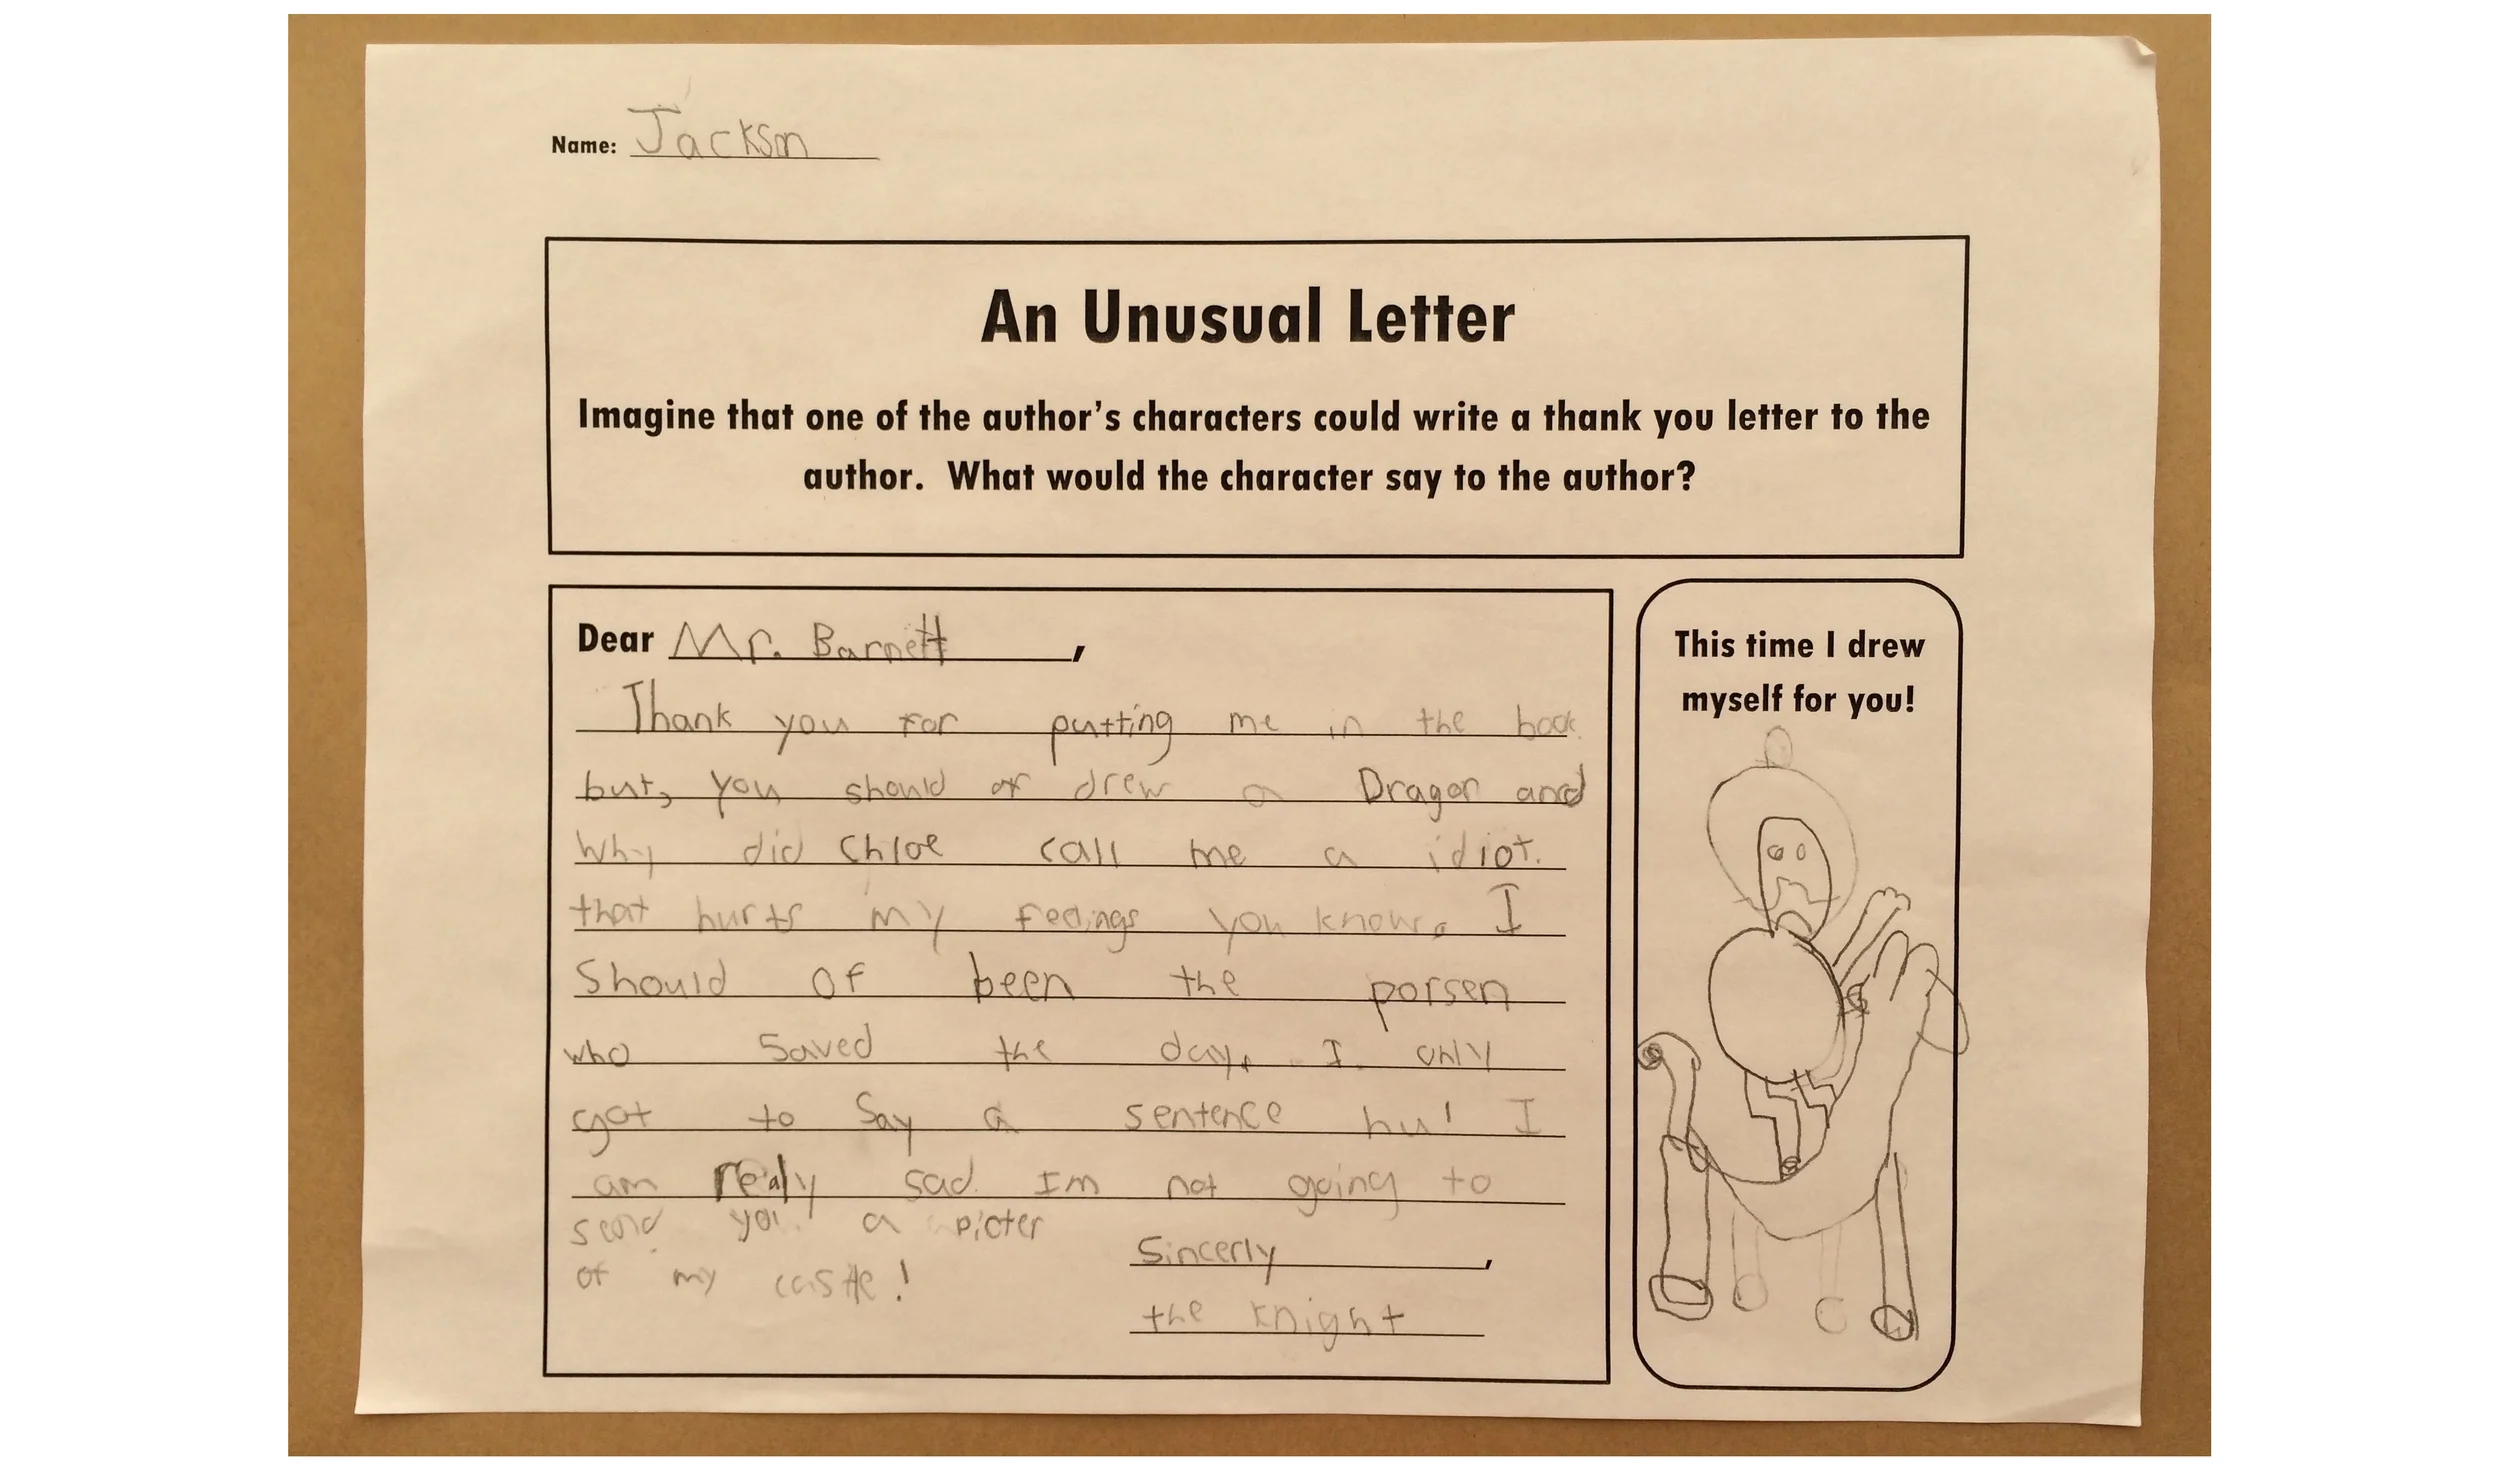 Name: Jackson
An Unusual Letter
Imagine that one of the author's characters could write a thank you letter to the
author. What would the character say to the author?
Dear Mr. Barnett,
Thank you for putting me in the book
but, you should of drew a Dragon and
Why did Chloe call me a idiot.
that hurts my feelings you know. I
Should of been the porsen
who saved the day, I only
got to Say a sentence hu! I
am realy sad Im not going to
send you a picter
of my castle!
Sincerly,
the knight
This time I drew
myself for you!